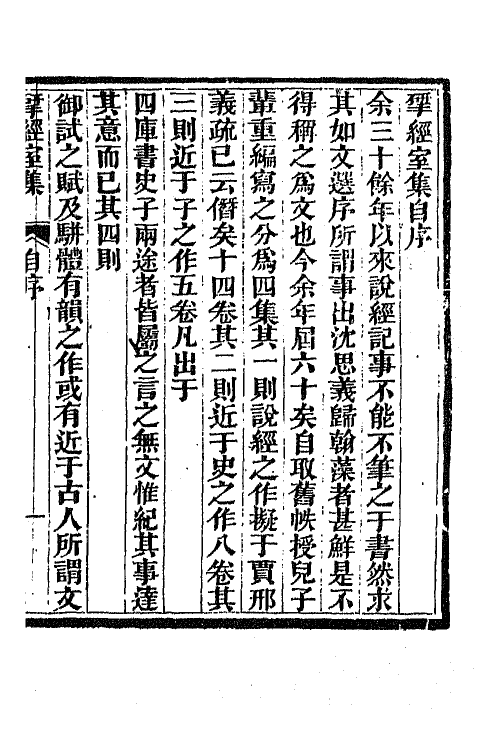 揅經室集自序
余三十餘年以來說經記事不能不筆之于書然求
其如文選序所謂事出沈思義歸翰藻者甚鮮是不
得稱之爲文也今余年屆六十矣自取舊帙授兒子
輩重編寫之分爲四集其一則說經之作擬于賈邢
義疏已云僭矣十四卷其二則近于史之作八卷其
三則近于子之作五卷凡出于
四庫書史子兩途者皆屬之言之無文惟紀其事達
其意而已其四則
御試之賦及駢體有韻之作或有近于古人所謂文
揅經室集 自序 一